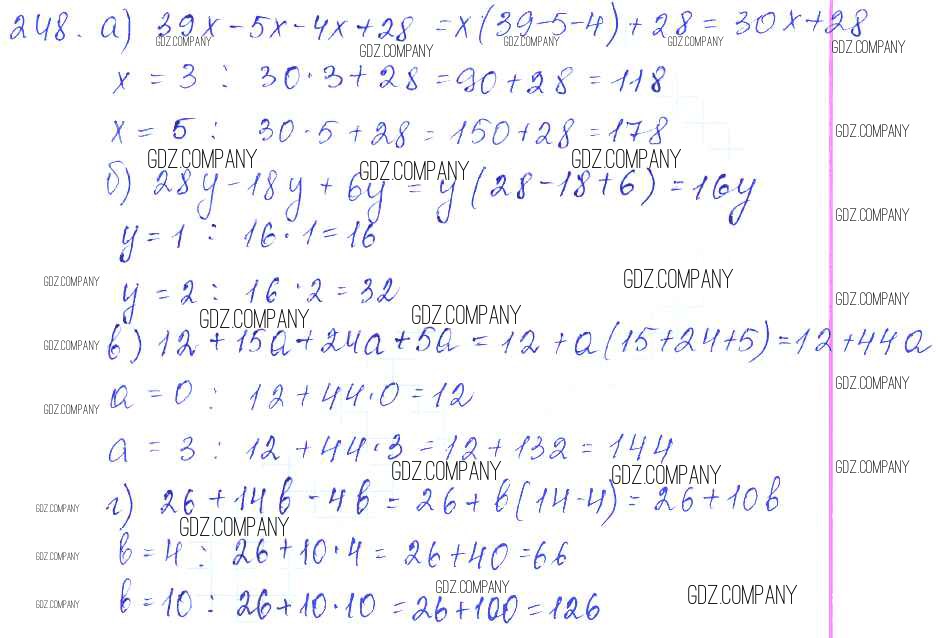 248. а) 39x - 5x - 4x + 28 = x(39-5-4) + 28 = 30x + 28
GDZ.COMPANY GDZ.COMPANY GDZ.COMPANY GDZ.COMPANY GDZ.COMPANY
x = 3 : 30·3 + 28 = 90 + 28 = 118
x = 5 : 30·5 + 28 = 150 + 28 = 178 GDZ.COMPANY
GDZ.COMPANY GDZ.COMPANY GDZ.COMPANY
б) 28y - 18y + 6y = y(28-18+6) = 16y
GDZ.COMPANY
y = 1 : 16·1 = 16
GDZ.COMPANY GDZ.COMPANY
y = 2 : 16·2 = 32 GDZ.COMPANY
GDZ.COMPANY GDZ.COMPANY
GDZ.COMPANY в) 12 + 15a + 24a + 5a = 12 + a(15+24+5) = 12 + 44a
GDZ.COMPANY
GDZ.COMPANY a = 0 : 12 + 44·0 = 12
a = 3 : 12 + 44·3 = 12 + 132 = 144
GDZ.COMPANY GDZ.COMPANY GDZ.COMPANY
GDZ.COMPANY г) 26 + 14в - 4в = 26 + в(14-4) = 26 + 10в
GDZ.COMPANY
GDZ.COMPANY в = 4 : 26 + 10·4 = 26 + 40 = 66
GDZ.COMPANY GDZ.COMPANY
GDZ.COMPANY в = 10 : 26 + 10·10 = 26 + 100 = 126